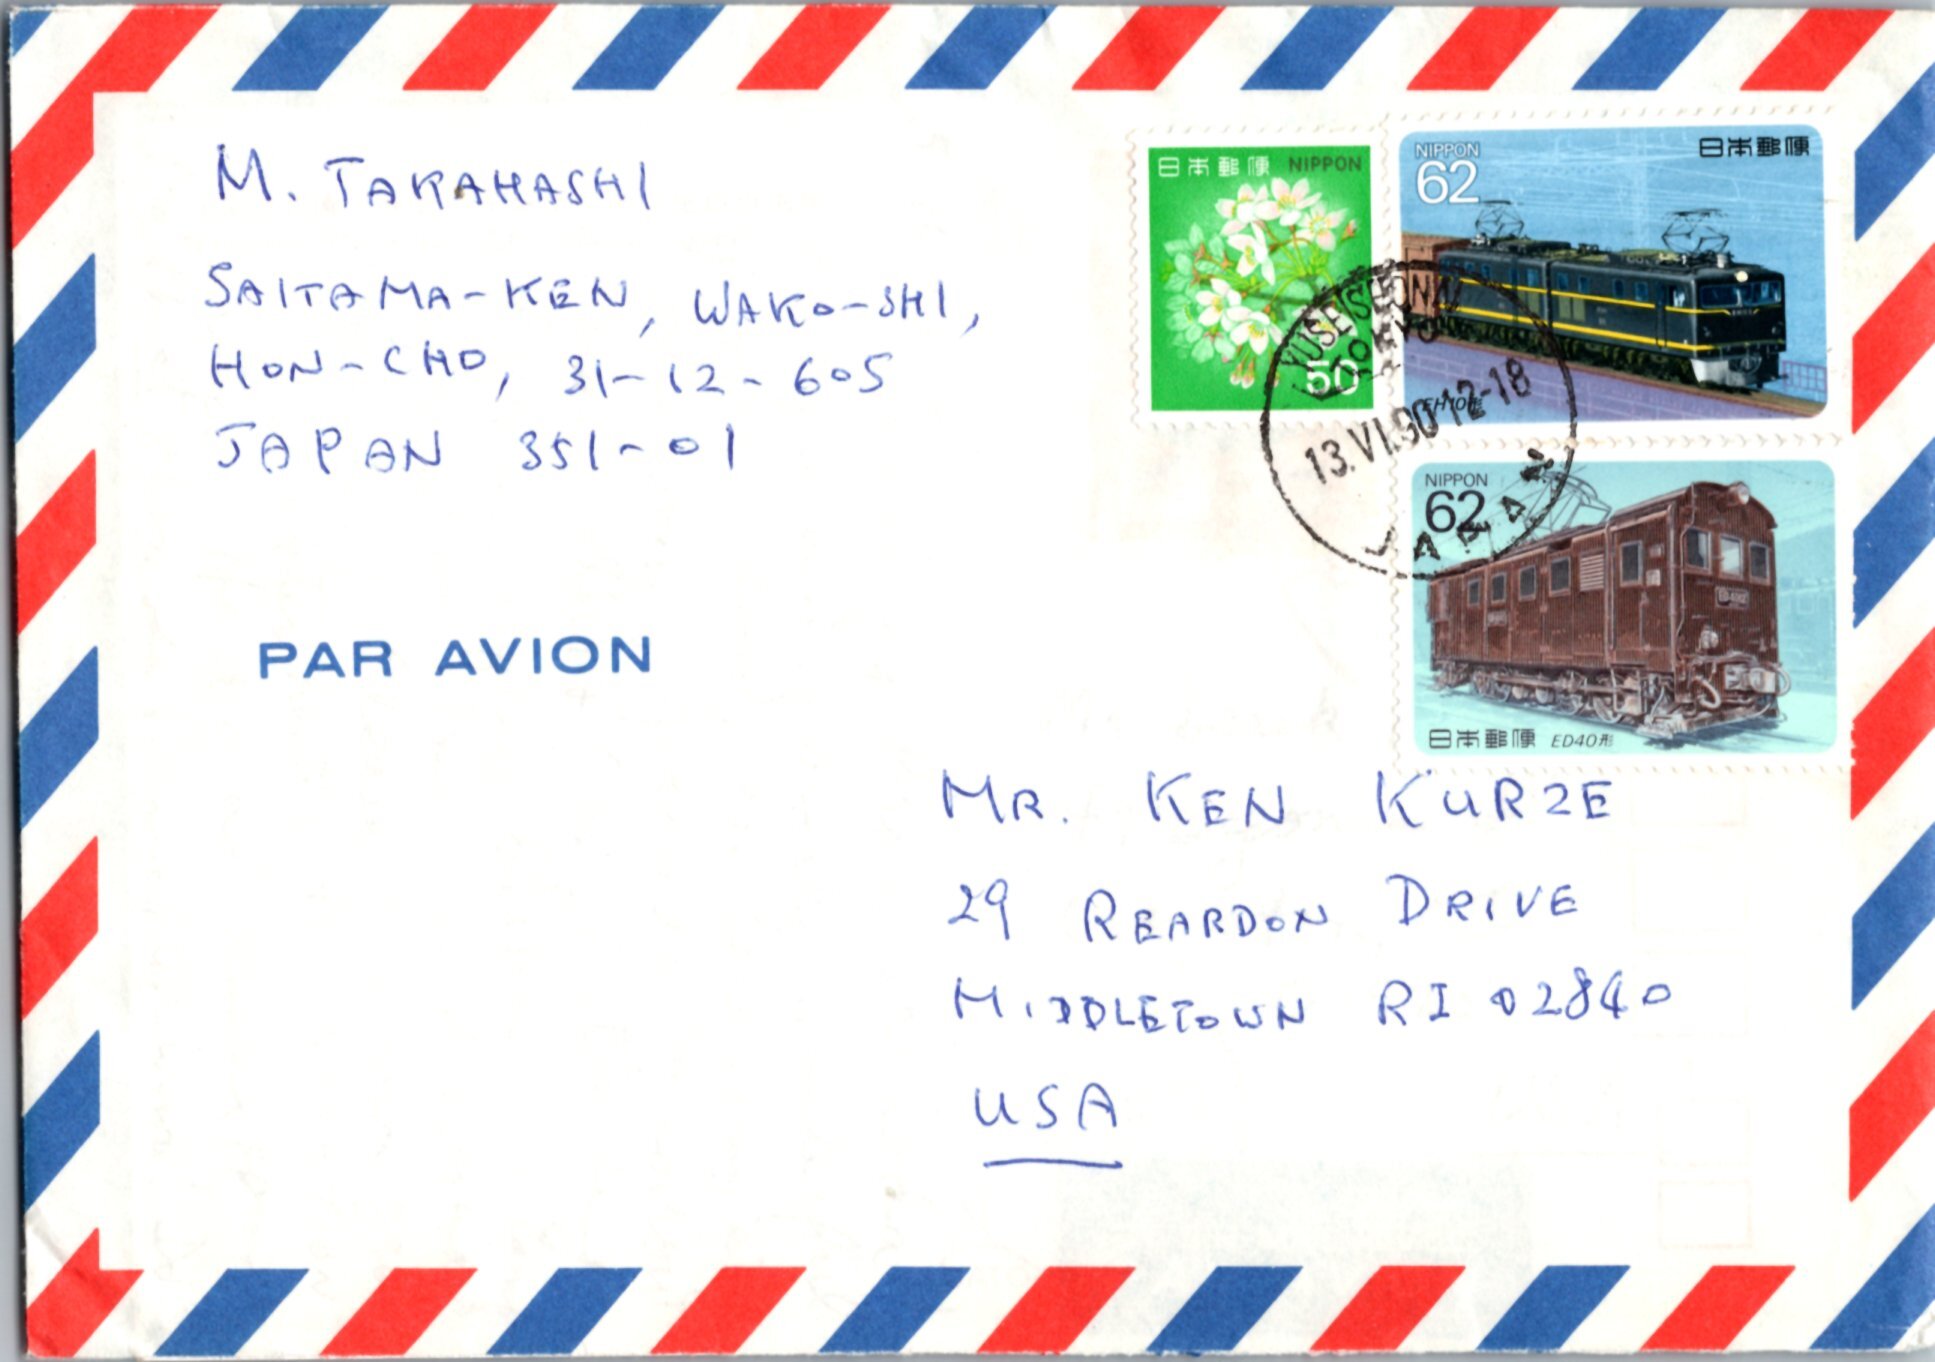 M. TAKAHASHI
SAITAMA-KEN, WAKO-SHI,
HON-CHO, 31-12-605
JAPAN 351-01
PAR AVION
日本郵便 NIPPON
50
NIPPON
62
日本郵便
EH10形
YUSEISHONAI
TOKYO
13.VI.90 12-18
JAPAN
NIPPON
62
日本郵便 ED40形
MR. KEN KURZE
29 REARDON DRIVE
MIDDLETOWN RI 02840
USA